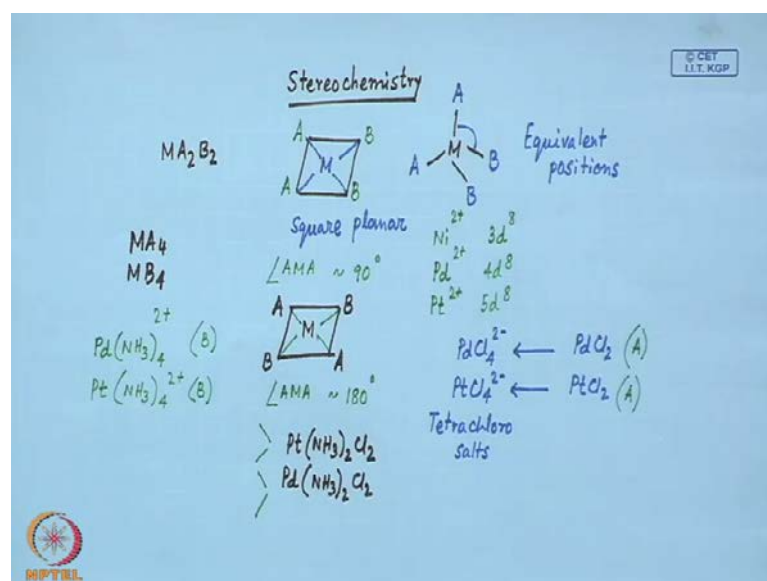 © CET
I.I.T. KGP
Stereochemistry
MA₂B₂
A B
M
A B
A
M
A B
B
Equivalent
positions
Square planar
MA₄
MB₄
∠AMA ~ 90°
Ni²⁺ 3d⁸
Pd²⁺ 4d⁸
Pt²⁺ 5d⁸
A B
M
B A
Pd(NH₃)₄²⁺ (B)
Pt(NH₃)₄²⁺ (B)
∠AMA ~ 180°
PdCl₄²⁻ ← PdCl₂ (A)
PtCl₄²⁻ ← PtCl₂ (A)
Tetrachloro
salts
Pt(NH₃)₂Cl₂
Pd(NH₃)₂Cl₂
NPTEL